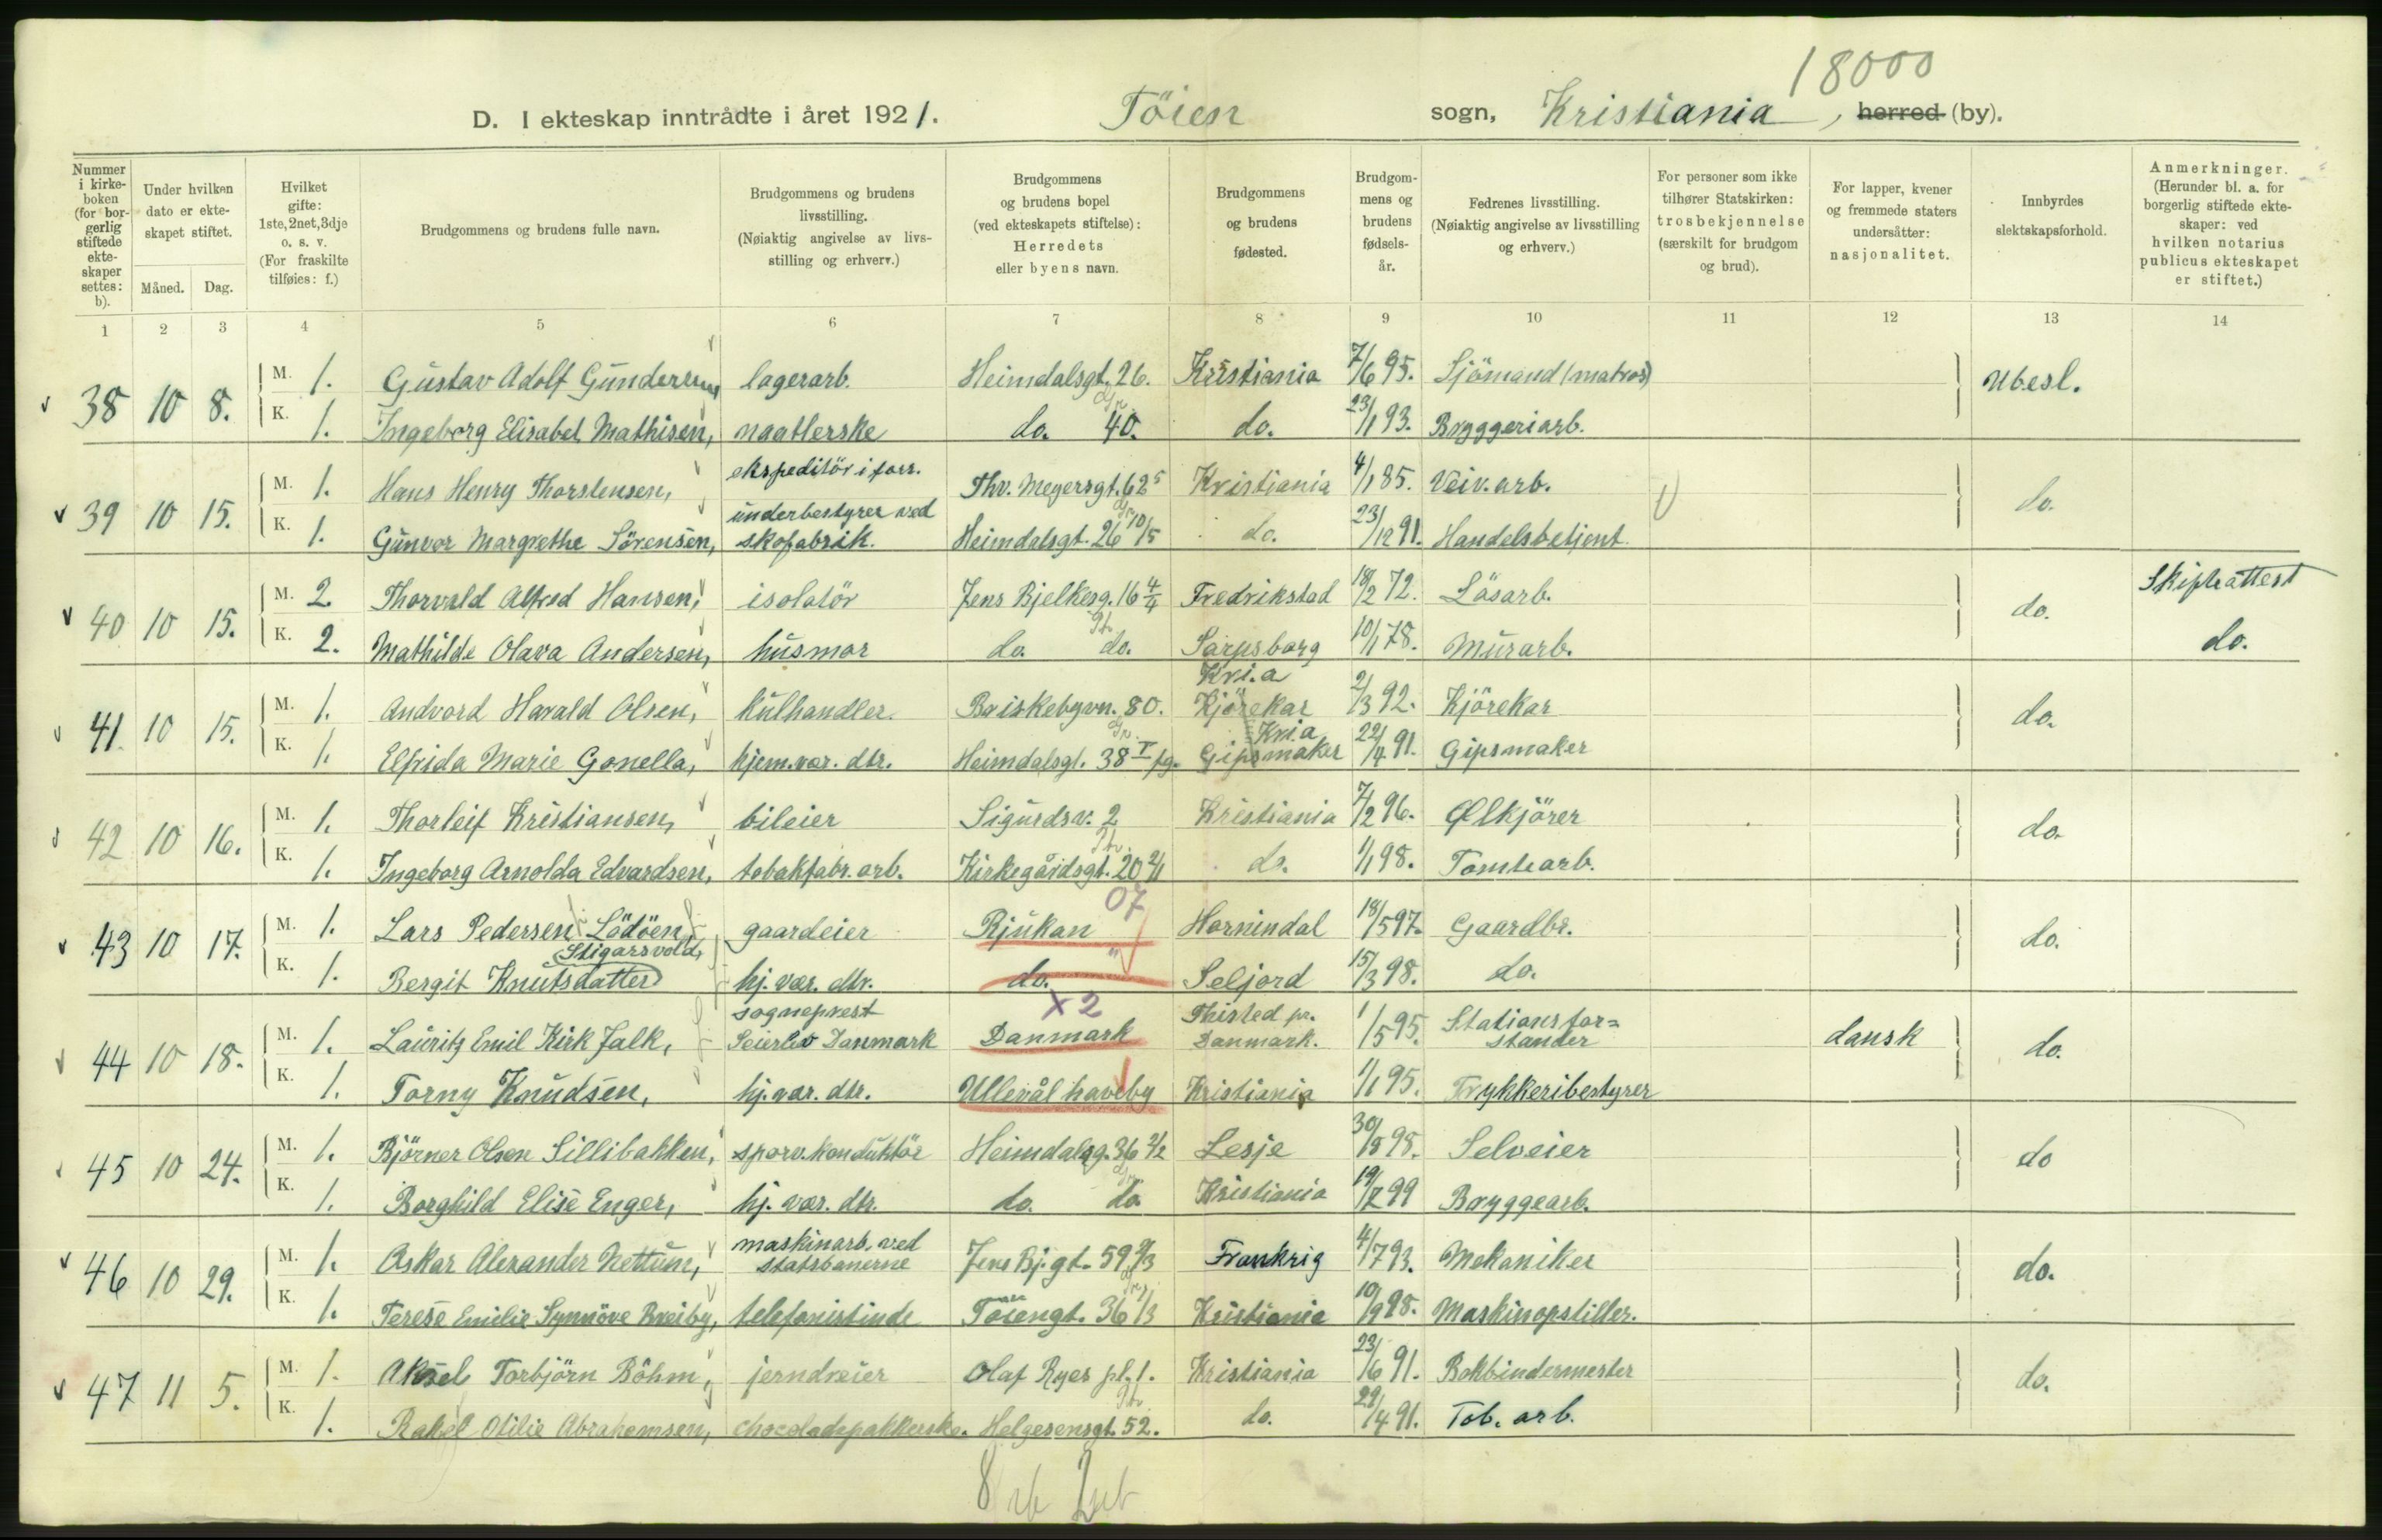 18000
D. I ekteskap inntrådte i året 1921. Töien sogn, Kristiania, herred (by).
Nummer i kirkeboken (for borgerlig stiftede ekteskaper settes: b).
Under hvilken dato er ekteskapet stiftet.
Måned. Dag.
Hvilket gifte: 1ste, 2net, 3dje o. s. v. (For fraskilte tilføies: f.)
Brudgommens og brudens fulle navn.
Brudgommens og brudens livsstilling. (Nøiaktig angivelse av livsstilling og erhverv.)
Brudgommens og brudens bopel (ved ekteskapets stiftelse): Herredets eller byens navn.
Brudgommens og brudens fødested.
Brudgommens og brudens fødselsår.
Fedrenes livsstilling. (Nøiaktig angivelse av livsstilling og erhverv.)
For personer som ikke tilhører Statskirken: trosbekjennelse (særskilt for brudgom og brud).
For lapper, kvener og fremmede staters undersåtter: nasjonalitet.
Innbyrdes slektskapsforhold.
Anmerkninger. (Herunder bl. a. for borgerlig stiftede ekteskaper: ved hvilken notarius publicus ekteskapet er stiftet.)
1 2 3 4 5 6 7 8 9 10 11 12 13 14
38 10 8. M. 1. Gustav Adolf Gundersen lagerarb. Heimdalsgt. 26. Kristiania 7/6 95. Sjömand (matros) Ubesl.
K. 1. Ingeborg Elisabet Mathisen, naatlerske do. 40. do. 23/1 93. Bryggeriarb.
39 10 15. M. 1. Hans Henry Thorstensen, ekspeditör i forr. Thv. Meyersgt. 62 5 Kristiania 4/1 85. Veiv. arb. do.
K. 1. Gunvor Margrethe Sörensen, underbestyrer ved skofabrik. Heimdalsgt. 26 10/5 do. 23/12 91. Handelsbetjent
40 10 15. M. 2 Thorvald Alfred Hansen, isolatör Jens Bjelkesg. 16 4/4 Fredrikstad 18/2 72. Läsarb. do. Skifteattest
K. 2. Mathilde Olava Andersen, husmor do. do. Sarpsborg 10/1 78. Murarb. do.
41 10 15. M. 1. Andvord Harald Olsen, kulhandler. Briskebyvn. 80. Kjörekar Kri.a 2/3 92. Kjörekar do.
K. 1. Elfrida Marie Gonella, hjem.vær. dtr. Heimdalsgt. 38 V fg. Gipsmaker Kria 22/4 91. Gipsmaker
42 10 16. M. 1. Thorleif Kristiansen, bileier Sigurdsv. 2 Kristiania 7/2 96. Ølkjörer do.
K. 1. Ingeborg Arnolda Edvardsen, tobakfabr. arb. Kirkegårdsgt. 20 2/1 do. 1/1 98. Tomtearb.
43 10 17. M. 1. Lars Pedersen Lödöen, gaardeier Rjukan 07 Hornindal 18/5 97. Gaardbr. do.
K. 1. Bergit Knutsdatter Stigarsvold, hj. vær. dtr. do. Seljord 15/3 98. do.
44 10 18. M. 1. Lauritz Emil Kirk Falk, sogneprest Seierlev Danmark Danmark x 2 Thisted pr. Danmark. 1/5 95. Stationsforstander dansk do.
K. 1. Torny Knudsen, hj. vær. dtr. Ullevål haveby Kristiania 1/1 95. Trykkeribestyrer
45 10 24. M. 1. Björner Olsen Sillibakken, sporv.konduktör Heimdalsg. 36 2/2 Lesje 30/8 98. Selveier do
K. 1. Borghild Elise Enger, hj. vær. dtr. do. do Kristiania 19/7 99 Bryggearb.
46 10 29. M. 1. Oskar Alexander Nettum, maskinarb. ved statsbanerne Jens Bj. gt. 59 2/3 Frankrig 4/7 93. Mekaniker do.
K. 1. Terese Emilie Synnöve Breiby, telefonistinde Töiengt. 36 1/3 Kristiania 10/9 98. Maskinopstiller.
47 11 5. M. 1. Aksel Torbjörn Böhm, jerndreier Olaf Ryes pl. 1. Kristiania 23/6 91. Bokbindermester do.
K. 1. Rakel Otilie Abrahamsen, chocoladepakkerske. Helgesensgt. 52. do. 29/4 91. Tob. arb.